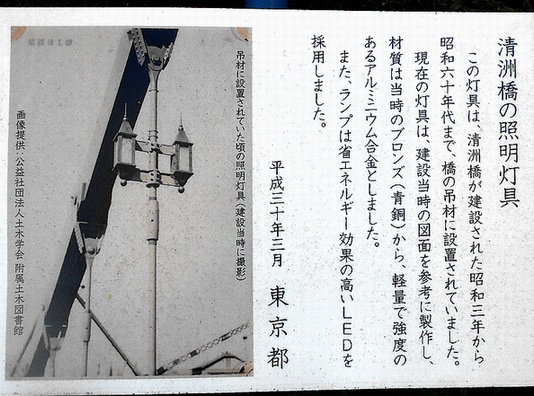 清洲橋の照明灯具
この灯具は、清洲橋が建設された昭和三年から
昭和六十年代まで、橋の吊材に設置されていました。
現在の灯具は、建設当時の図面を参考に製作し、
材質は当時のブロンズ(青銅)から、軽量で強度の
あるアルミニウム合金としました。
また、ランプは省エネルギー効果の高いLEDを
採用しました。
平成三十年三月 東京都
吊材に設置されていた頃の照明灯具(建設当時に撮影)
画像提供:公益社団法人土木学会 附属土木図書館